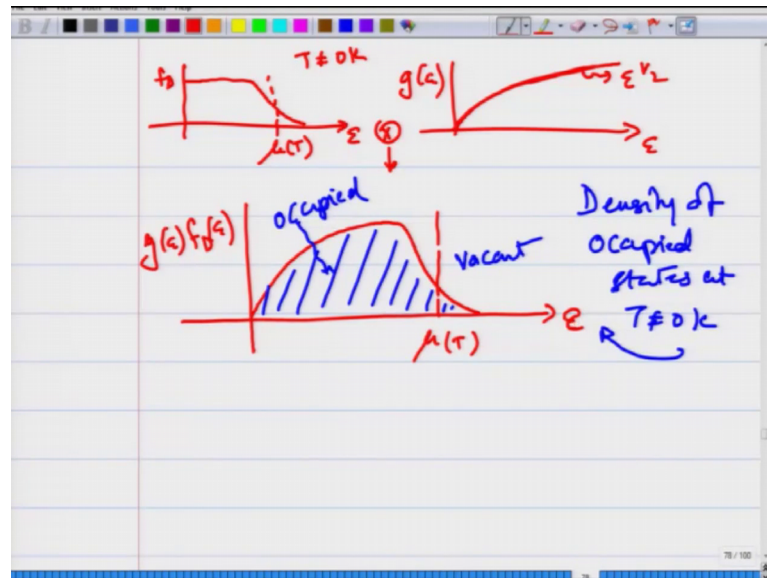 T ≠ 0 K
f_D
μ(T)
ε
&
g(ε)
→ ε^1/2
ε
g(ε) f_D(ε)
occupied
vacant
μ(T)
ε
Density of
occupied
states at
T ≠ 0 K
78 / 100